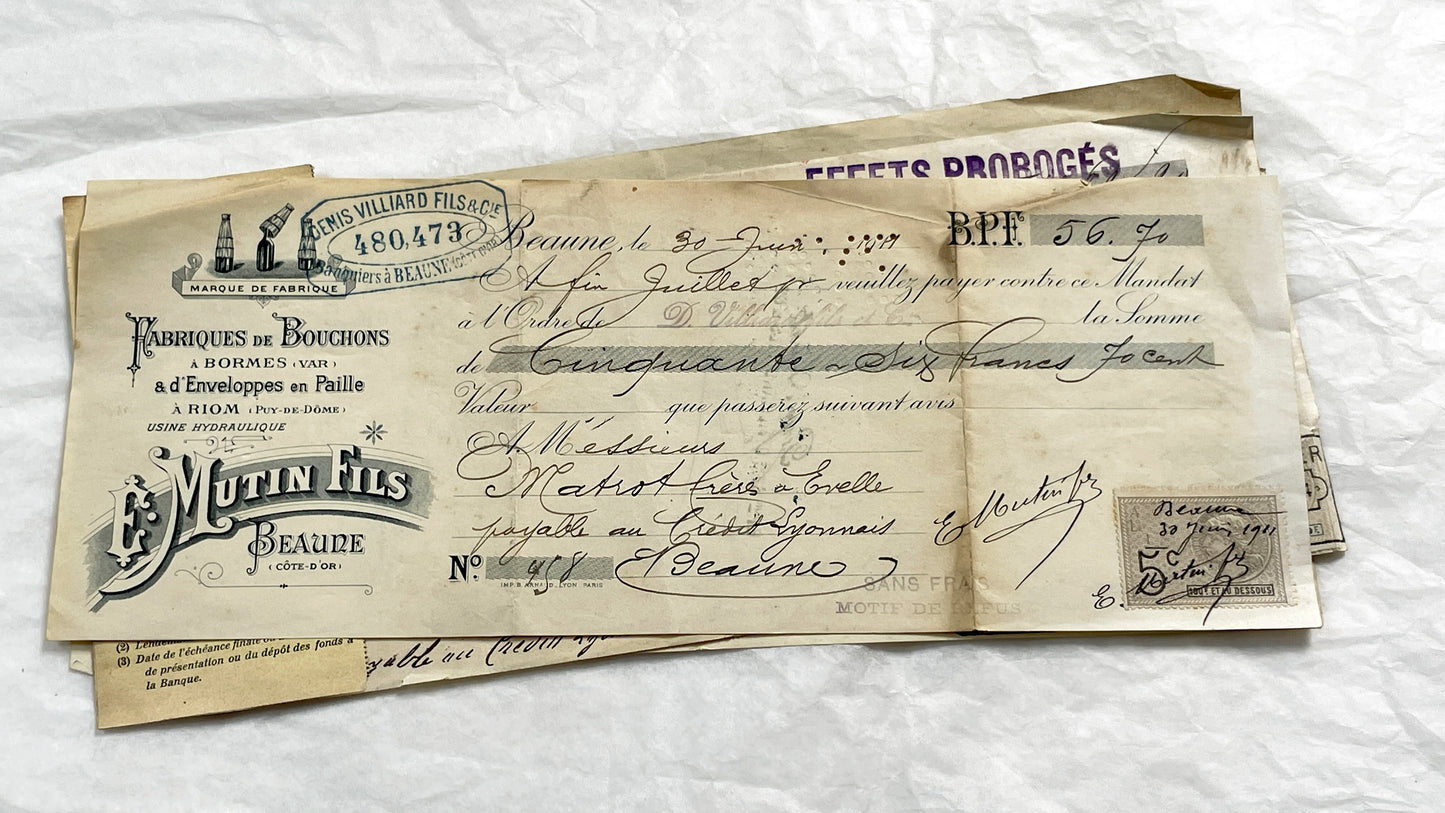 EFFETS PROROGÉS
DENIS VILLIARD FILS & CIE
480,473
Banquiers à BEAUNE (CÔTE D'OR)
MARQUE DE FABRIQUE
FABRIQUES DE BOUCHONS
À BORMES (VAR)
& d'Enveloppes en Paille
À RIOM (PUY-DE-DÔME)
USINE HYDRAULIQUE
E. MUTIN FILS
BEAUNE
(CÔTE-D'OR)
Beaune, le 30 Juin 1911 B.P.F. 56.70
A fin Juillet pr veuillez payer contre ce Mandat
à l'Ordre de D. Villiard fils et Cie la Somme
de Cinquante & Six Francs 70 cent
Valeur que passerez suivant avis
A Méssieurs
Matrot frères à Evelle
payable au Crédit Lyonnais
No 458 Beaune
IMP. B. ARNAUD, LYON PARIS
SANS FRAIS
MOTIF DE REFUS
E Mutin fils
Beaune
30 Juin 1911
5c
E. Mutin fils
100f ET AU DESSOUS
(3) Date de l'échéance finale ou
de présentation ou du dépôt des fonds à
la Banque.
payable au Crédit Ly